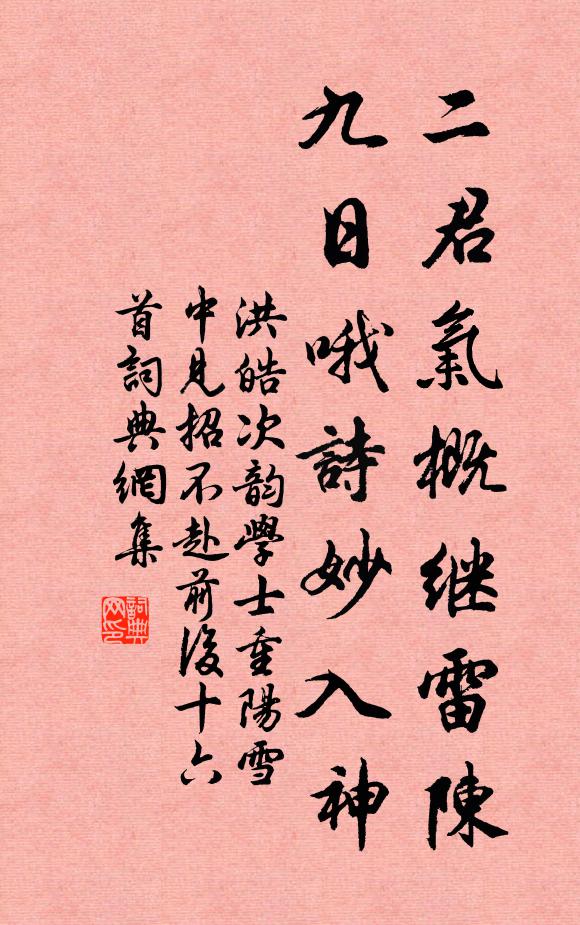 二君氣概继雷陳
九日哦詩妙入神
洪皓次韵學士重陽雪
中見招不赴前後十六
首詞典網集
詞典
网印